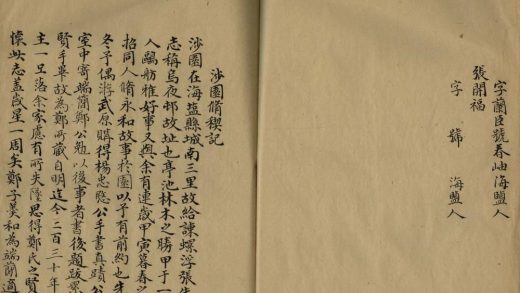 字蘭臣號春岫海鹽人
張開福
字 號 海鹽人
涉園脩稧記
涉園在海鹽縣城南三里故給諫螺浮張先
志稱烏夜邨故址也亭池林木之勝甲于一
人鷗舫雅好事又與余有連歲甲寅暮春之
招同人脩永和故事於園以予有前約也先
冬予偶游武原購得楊忠愍公手書真蹟公
室中寄端簡鄭公勉以後事者書後題跋纍
賢手畢故為鄭所藏自明迄今二百三十年
主一旦落余家慮有所失墜思得鄭氏之賢
懷此志蓋歲星一周矣鄭子箕和為端簡適